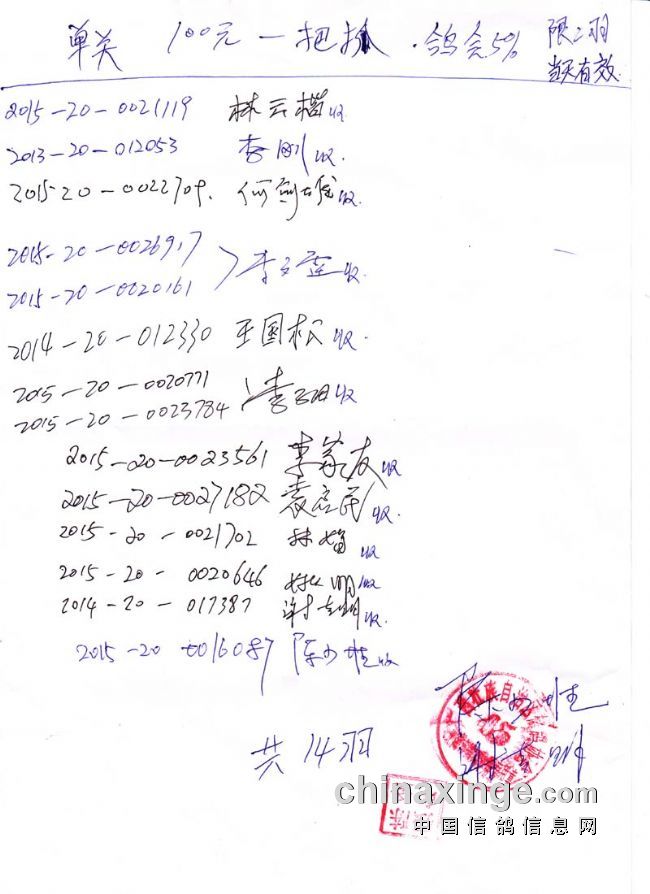 单关 100元一把抓 · 鸽会5% 限二羽
当天有效
2015-20-0021119 林云 收
2013-20-012053 李刚 收
2015-20-0022709 何剑雄 收
2015-20-0026917
2015-20-0020161 收
2014-20-012330 王国松 收
2015-20-0020771
2015-20-0023784 收
2015-20-0023561 李家友 收
2015-20-0027182 袁启民 收
2015-20-0021702 林 收
2015-20-0020646 明 收
2014-20-017387 谢 明 收
2015-20-016087 陈少 收
共14羽
chinaxinge.com
中国信鸽信息网